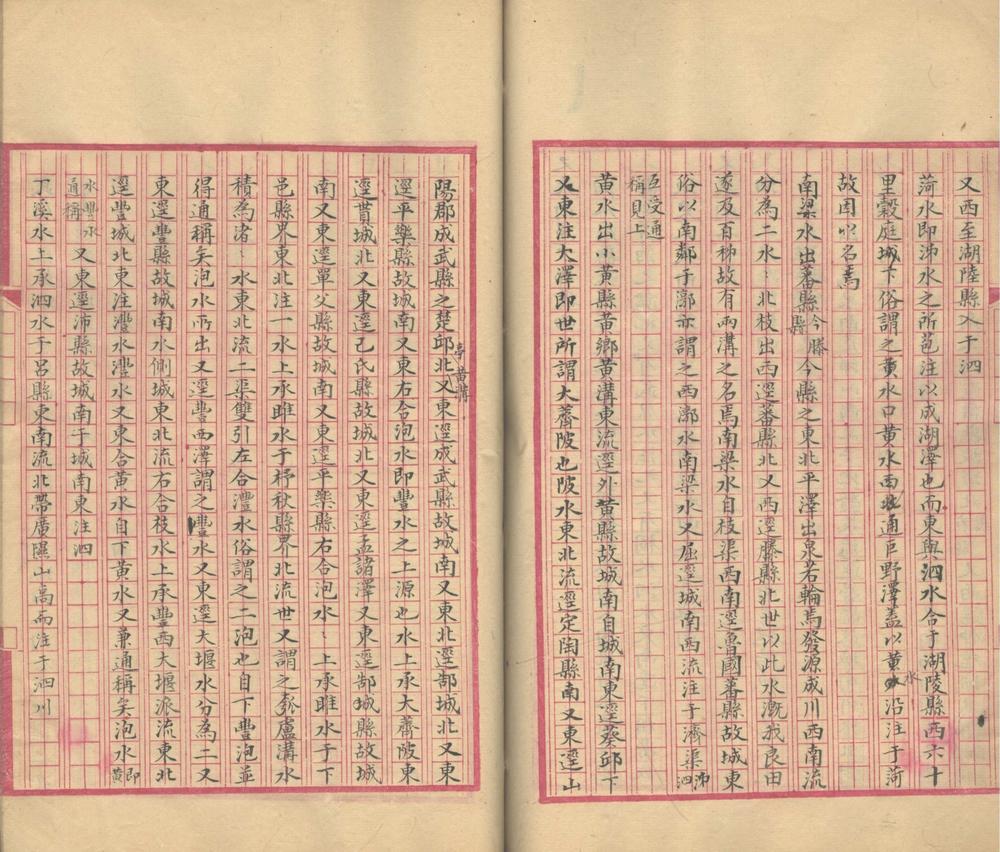 又西至湖陸縣入于泗
菏水即沛水之所苞注以成湖澤也而東與泗水合于湖陵縣西六十
里穀庭城下俗謂之黄水口黄水西北通巨野澤蓋以黄水沿注于菏
故因以名焉
南梁水出蕃縣今滕縣今縣之東北平澤出泉若輪焉發源成川西南流
分為二水〻北枝出西逕蕃縣北又西逕滕縣北世以此水溉我良田
遂及百秭故有兩溝之名焉南梁水自枝渠西南逕魯國蕃縣故城東
俗以南鄰于漷亦謂之西漷水南梁水又屈逕城南西流注于濟渠沛泗
互受通稱見上
黄水出小黄縣黄鄉黄溝東流逕外黄縣故城南自城南東逕葵邱下
又東注大澤即世所謂大薺陂也陂水東北流逕定陶縣南又東逕山
陽郡成武縣之楚邱亭黄溝北又東逕成武縣故城南又東北逕郜城北又東
逕平樂縣故城南又東右合泡水即豐水之上源也水上承大薺陂東
逕貰城北又東逕己氏縣故城北又東逕孟諸澤又東逕郜城縣故城
南又東逕單父縣故城南又東逕平樂縣右合泡水〻上承睢水于下
邑縣界東北注一水上承睢水于杼秋縣界北流世又謂之瓠盧溝水
積為渚〻水東北流二渠雙引左合灃水俗謂之二泡也自下豐泡並
得通稱矣泡水所出又逕豐西澤謂之豐水又東逕大堰水分為二又
東逕豐縣故城南水側城東北流右合枝水上承豐西大堰派流東北
逕豐城北東注灃水灃水又東合黄水自下黄水又兼通稱矣泡水即黄
水豐水通稱又東逕沛縣故城南于城南東注泗
丁溪水上承泗水于呂縣東南流北帶廣隰山高而注于泗川